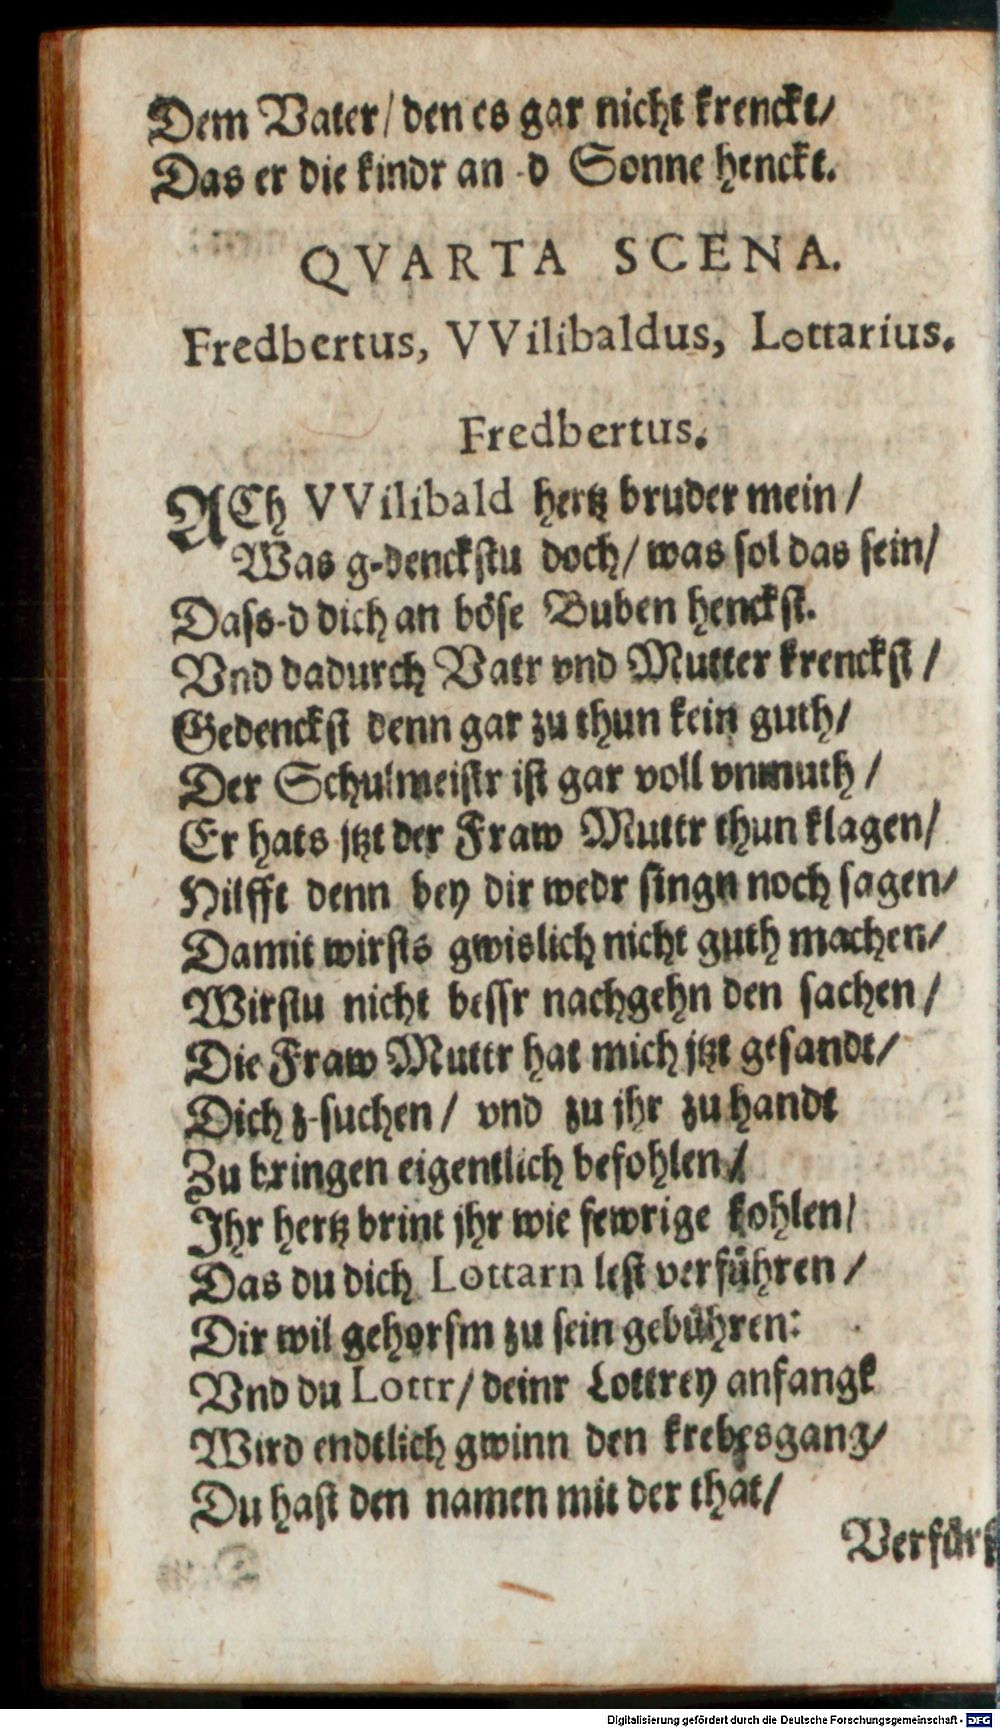 Dem Vater / den es gar nicht krenckt /
Das er die kindr an -d Sonne henckt.
QVARTA SCENA.
Fredbertus, VVilibaldus, Lottarius.
Fredbertus.
ACh VVilibald hertz bruder mein /
Was g-denckstu doch / was sol das sein /
Dass-d dich an böse Buben henckst.
Vnd dadurch Vatr vnd Mutter krenckst /
Gedenckst denn gar zu thun kein guth /
Der Schulmeistr ist gar voll vnmuth /
Er hats jtzt der Fraw Muttr thun klagen /
Hilfft denn bey dir wedr singn noch sagen /
Damit wirsts gwislich nicht guth machen /
Wirstu nicht bessr nachgehn den sachen /
Die Fraw Muttr hat mich jtzt gesandt /
Dich z-suchen / vnd zu jhr zu handt
Zu bringen eigentlich befohlen /
Jhr hertz brint jhr wie fewrige kohlen /
Das du dich Lottarn lest verführen /
Dir wil gehorsm zu sein gebühren:
Vnd du Lottr / deinr Lottrey anfangk
Wird endtlich gwinn den krebxsgang /
Du hast den namen mit der that /
Verfürst
Digitalisierung gefördert durch die Deutsche Forschungsgemeinschaft - DFG